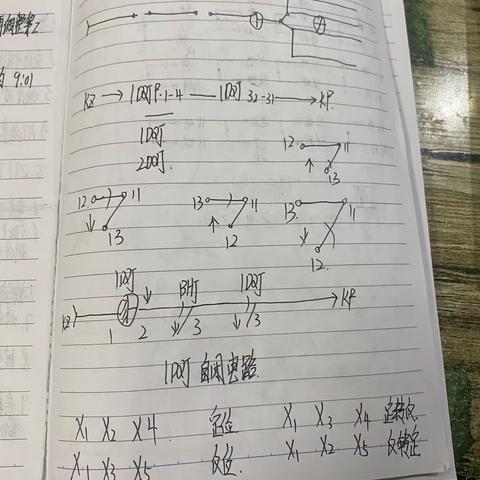 9:01
KZ → 1DQJF 1-4 — 1DQJ 32-31 → KF
1DQJ
2DQJ
12 11
13
12 11
13
13 11
12
13 11
12
1DQJ BHJ 1DQJ
KZ KF
1 2 3 3
1DQJ 自闭电路
X1 X2 X4 定位 X1 X3 X4 定转反
X1 X3 X5 反位 X1 X2 X5 反转定